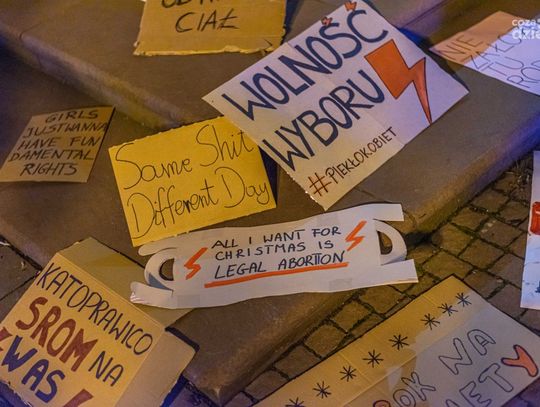 CIAŁ
WOLNOŚĆ
WYBORU
#PIEKŁOKOBIET
NIE
TU
GIRLS
JUST WANNA
HAVE FUN
DAMENTAL
RIGHTS
Same Shit
Different Day
ALL I WANT FOR
CHRISTMAS IS
LEGAL ABORTION
KATOPRAWICO
SROM NA
WAS
****** 
OK NA